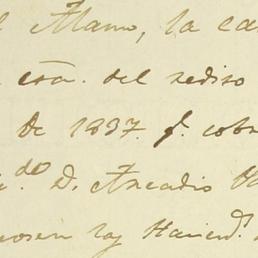 l Alamo, la ca
cta. del rediso
de 1837. p. cobr
do D. Arcadio
las Haciend.s